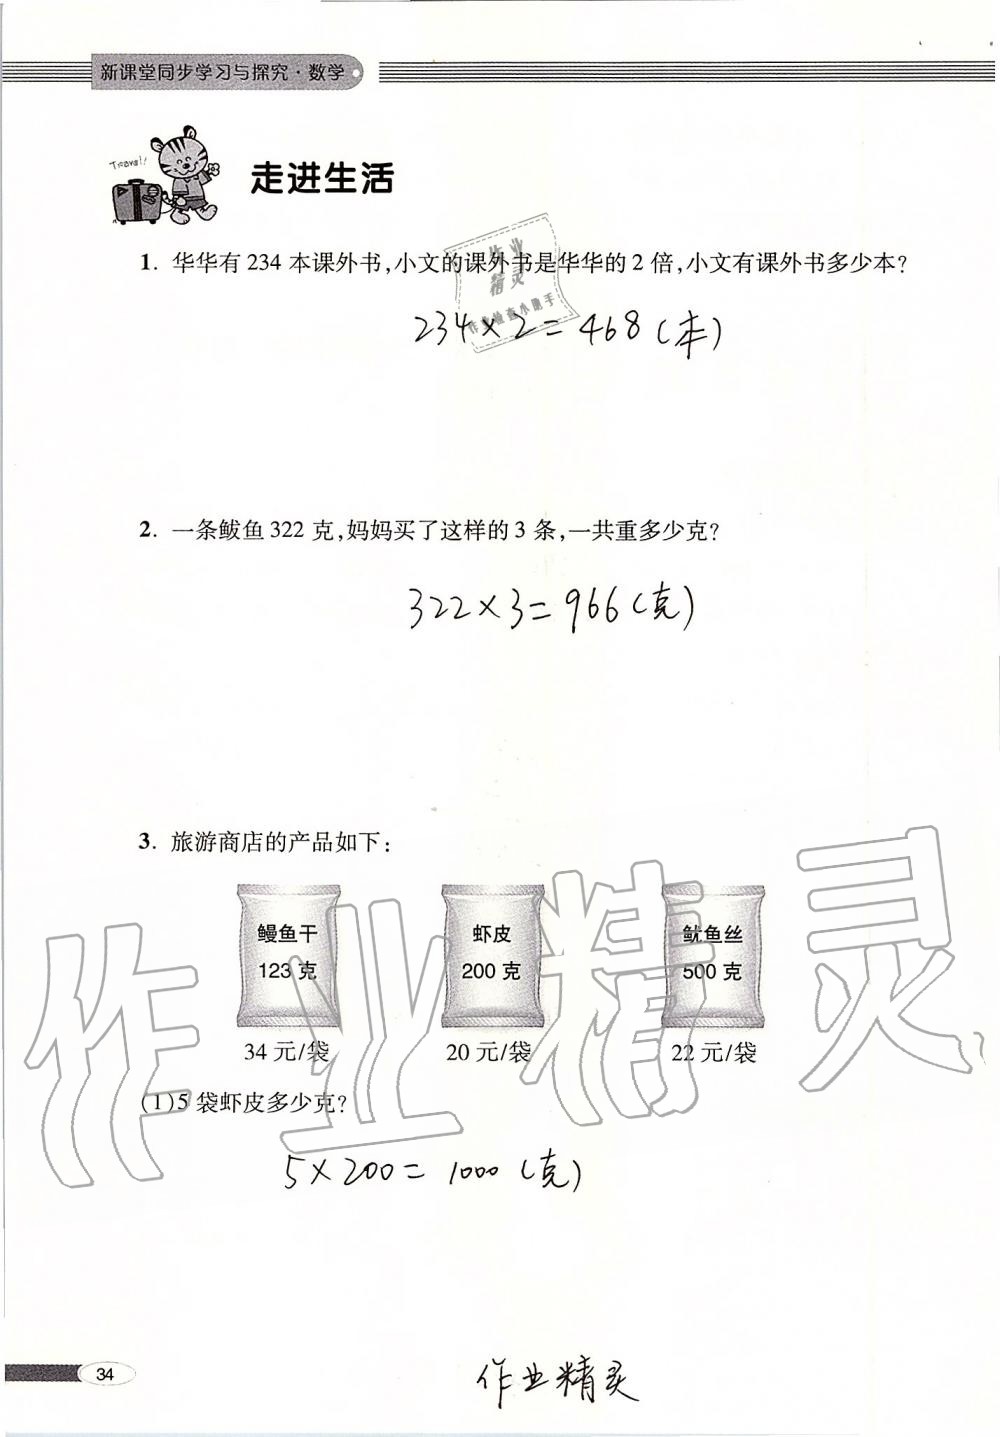 新课堂同步学习与探究·数学
Travel!!
走进生活
1. 华华有 234 本课外书,小文的课外书是华华的 2 倍,小文有课外书多少本?
作业
精灵
作业检查小助手
234×2=468(本)
2. 一条鲅鱼 322 克,妈妈买了这样的 3 条,一共重多少克?
322×3=966(克)
3. 旅游商店的产品如下:
鳗鱼干 虾皮 鱿鱼丝
123 克 200 克 500 克
34 元/袋 20 元/袋 22 元/袋
(1)5 袋虾皮多少克?
5×200=1000(克)
作业精灵
34
作业精灵